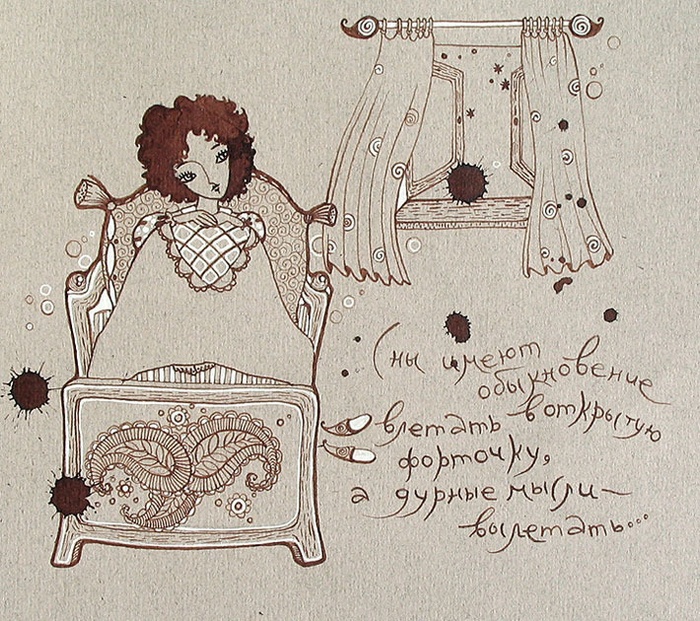 Сны имеют
обыкновение
влетать в открытую
форточку,
а дурные мысли—
вылетать...